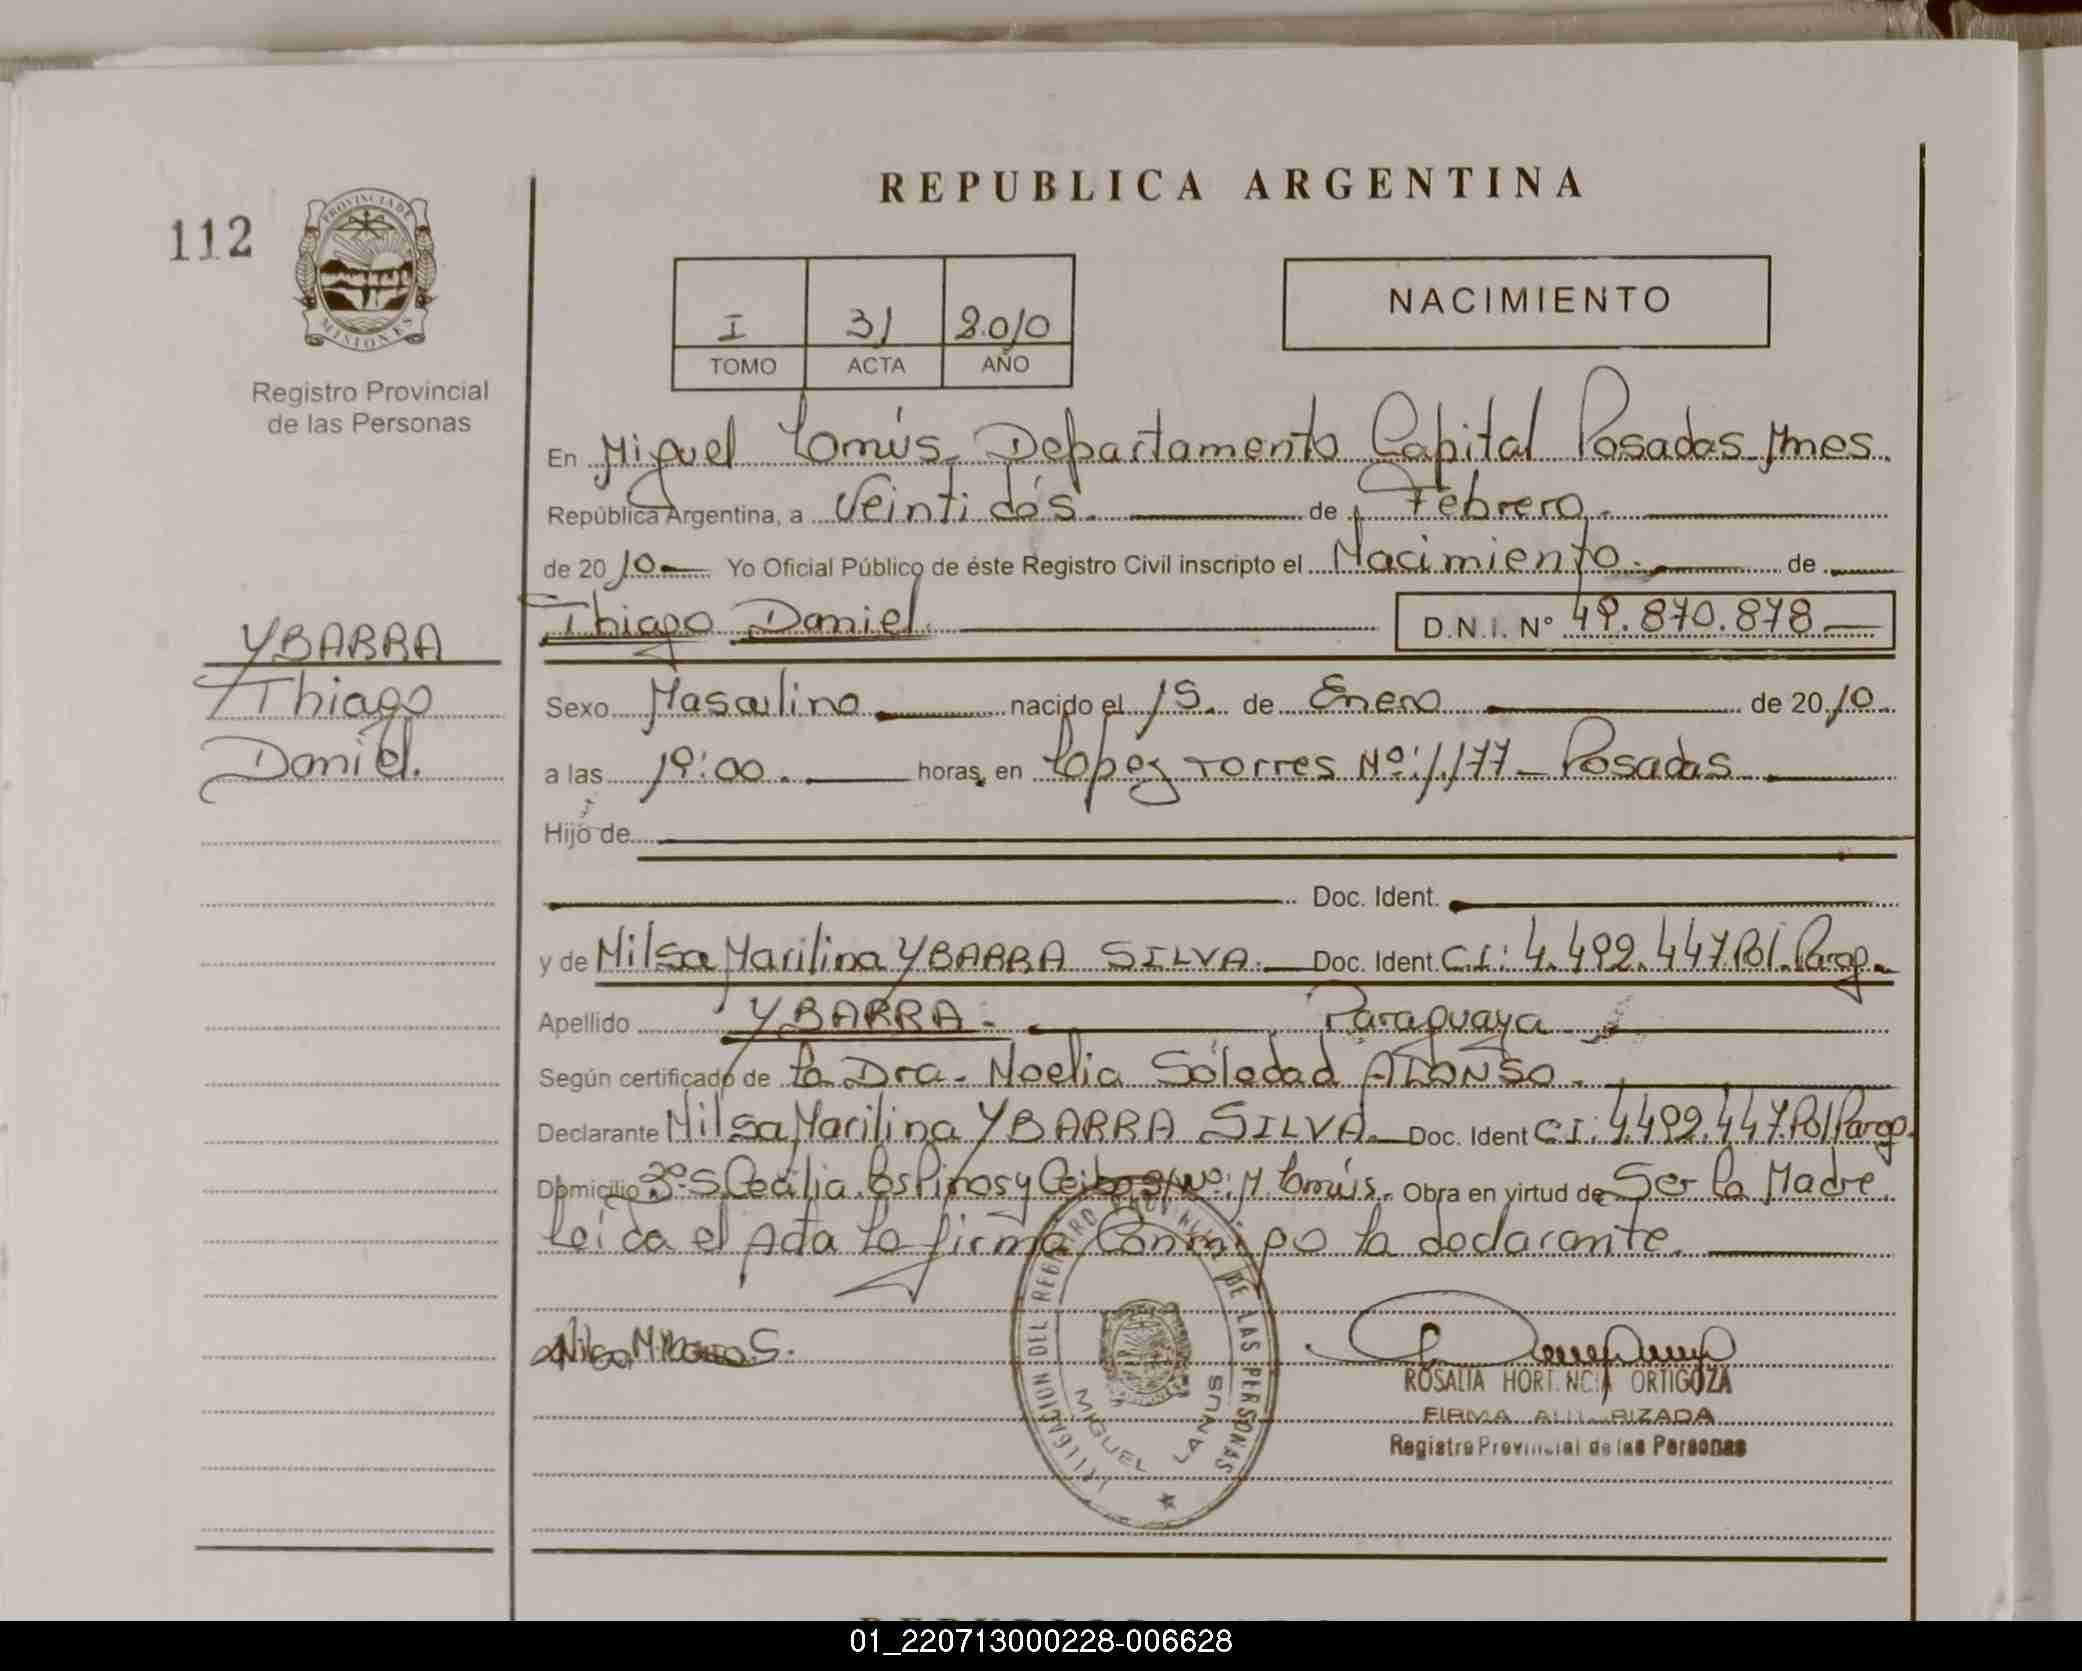 REPUBLICA ARGENTINA
112
PROVINCIA DE
MISIONES
Registro Provincial
de las Personas
NACIMIENTO
I 31 2010
TOMO ACTA AÑO
En Miguel Lanús. Departamento Capital Posadas Mnes.
República Argentina, a Veinti dós. de Febrero.
de 2010 Yo Oficial Público de éste Registro Civil inscripto el Nacimiento. de
Thiago Daniel. D.N.I. Nº 49.870.878
YBARRA
Thiago
Daniel.
Sexo Masculino nacido el 15. de Enero de 2010.
a las 19:00. horas, en Lopez Torres Nº: 1.177 - Posadas
Hijo de
Doc. Ident.
y de Nilsa Marilina YBARRA SILVA. Doc. Ident C.I: 4.492.447 Pol. Parag.
Apellido YBARRA. Paraguaya
Según certificado de La Dra. Noelia Soledad
Declarante Nilsa Marilina YBARRA SILVA. Doc. Ident C.I: 4.492.447 Pol Parag.
Domicilio S. Cecilia. Los Pinos y s/Nº: M. Lanús. Obra en virtud de Ser la Madre.
Leida el Acta La firma Conmigo la declarante.
DELEGACION DEL REGISTRO PROVINCIAL DE LAS PERSONAS
MIGUEL LANUS
Nilsa M. S.
ROSALIA HORTENCIA ORTIGOZA
FIRMA AUTORIZADA
Registro Provincial de las Personas
01_220713000228-006628